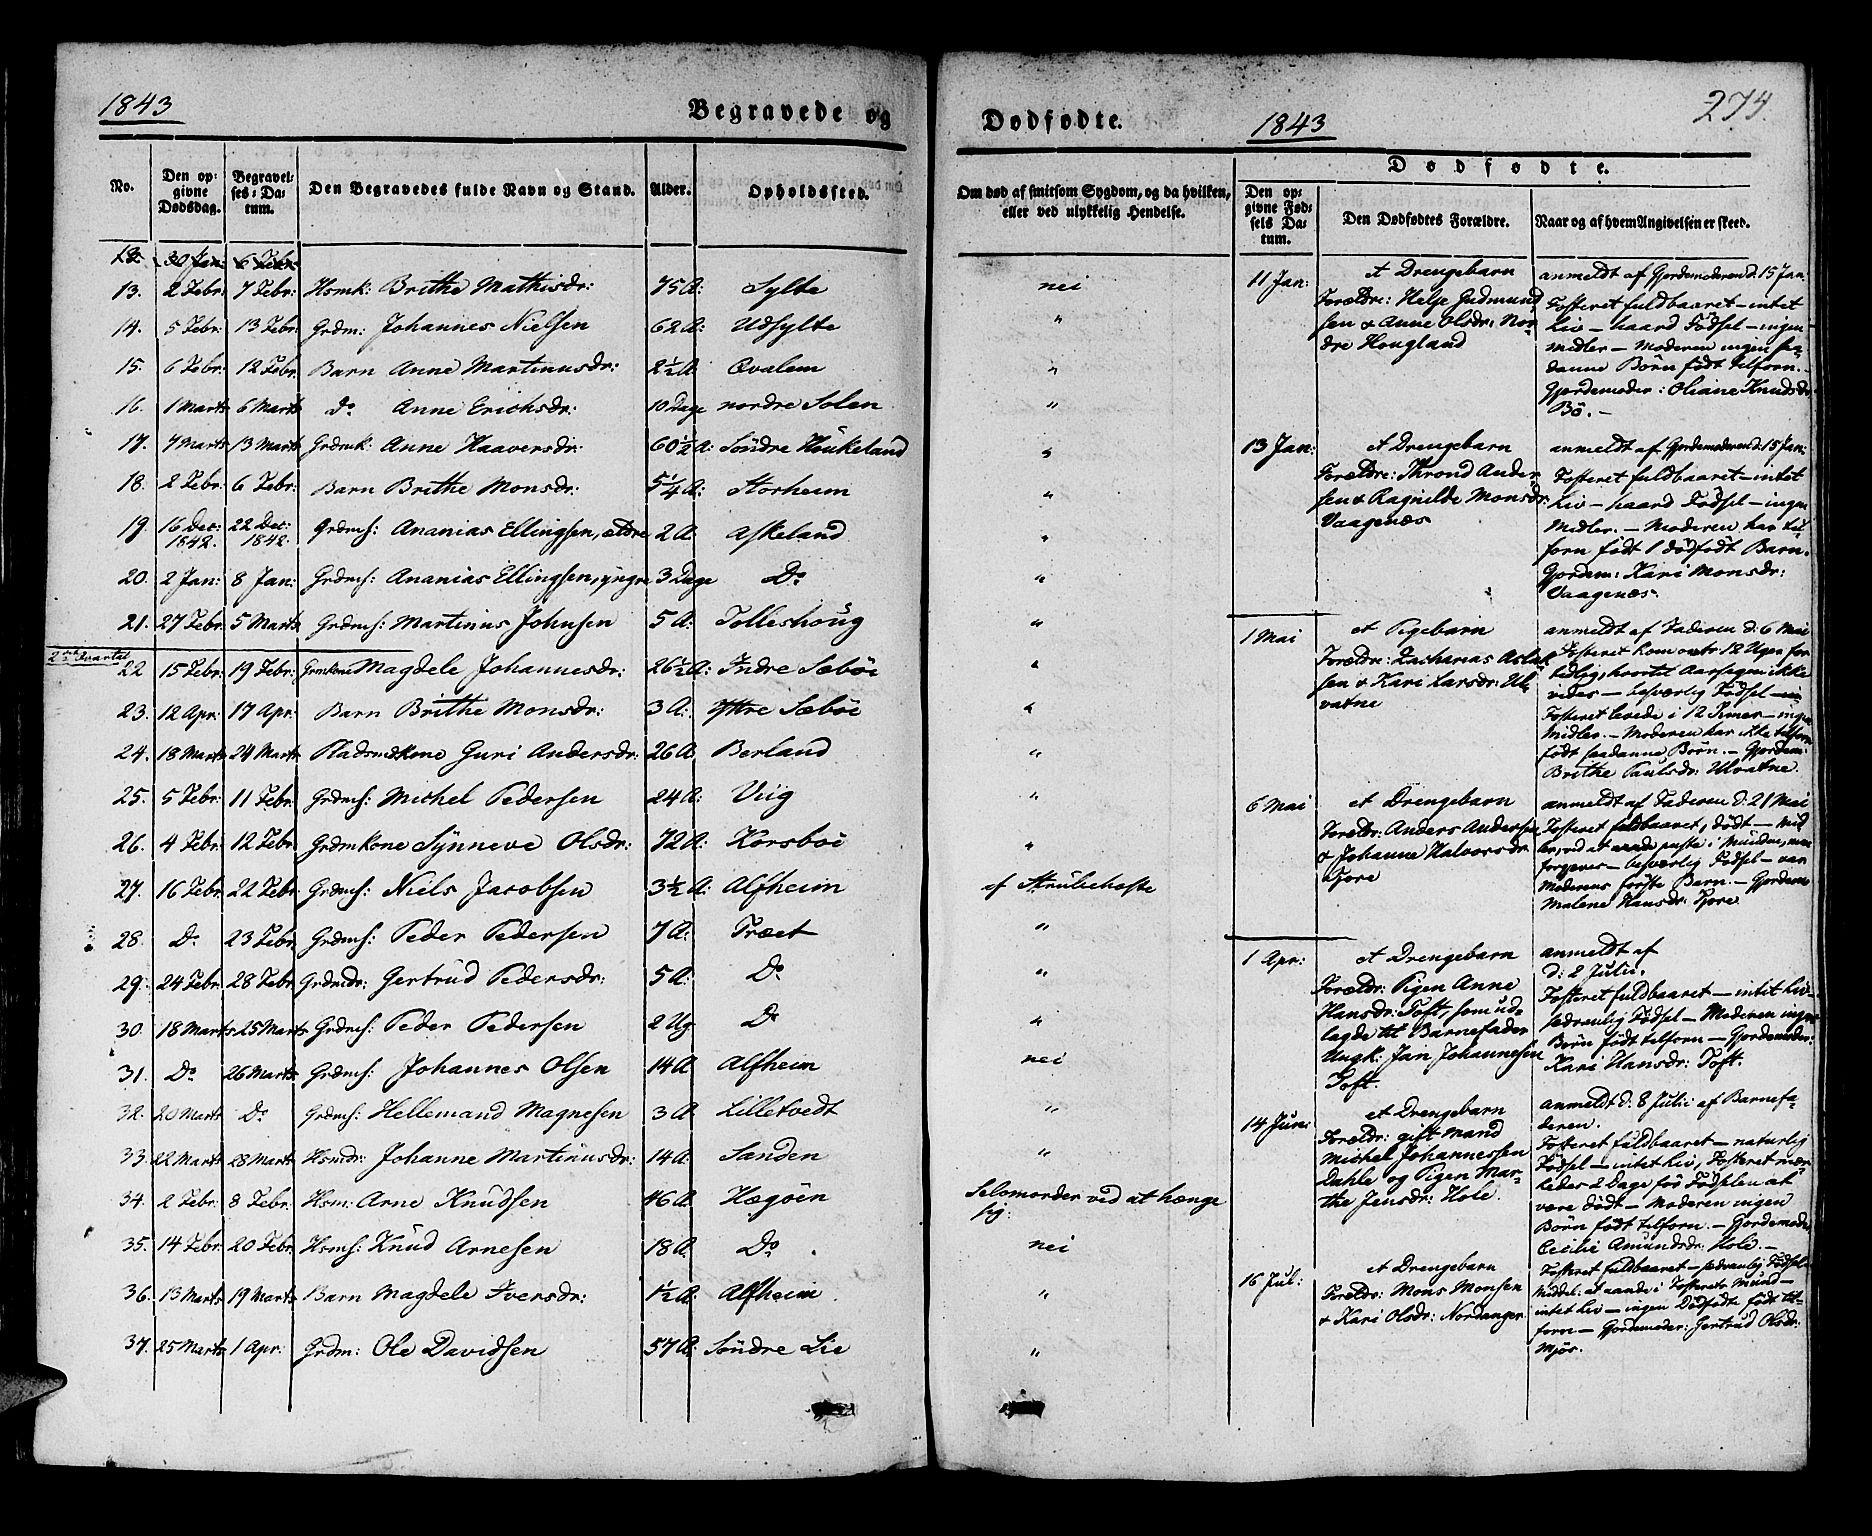 1843
Begravede og
No.
Den op-
givne
Dødsdag.
Begravel-
ses-Da-
tum.
Den Begravedes fulde Navn og Stand.
Alder.
Opholdssted.
12. 30 Jan: 6 Febr:
13. 2 Febr: 7 Febr: Hsmk: Brithe Mathisdr: 75 A: Sylte
14. 5 Febr: 13 Febr: Grdm: Johannes Nielsen 62 A: Udsylte
15. 6 Febr: 12 Febr: Barn Anne Martinusdr: 2½ A
16. 1 Marts 6 Marts Do Anne Erichsdr: 10 Dage nordre Solen
17. 7 Marts 13 Marts Grdmk: Anne Haaversdr: 60½ A: Söndre Houkeland
18. 2 Febr: 6 Febr: Barn Brithe Monsdr: 5¼ A: Storheim
19. 16 Dec: 1842. 22 Dec: 1842. Grdms: Ananias Ellingsen, ældre 2 A: Askeland
20. 2 Jan: 8 Jan: Grdms: Ananias Ellingsen, yngre 3 Dage Do
21. 27 Febr: 5 Marts Grdms: Martinus Johnsen 5 A: Tolleshoug
2det Qvartal
22 15 Febr: 19 Febr: Grmkone Magdele Johannesdr: 26½ A: Indre Sæböe
23. 12 Apr: 17 Apr: Barn Brithe Monsdr: 3 A: Yttre Sæböe
24. 18 Marts 24 Marts Pladsmækone Guri Andersdr: 26 A Berland
25. 5 Febr: 11 Febr: Grdms: Michel Pedersen 24 A: Viig
26. 4 Febr: 12 Febr: Grdmkone Synneve Olsdr: 72 A: Korsböe
27. 16 Febr: 22 Febr: Grdms: Niels Jacobsen 3½ A: Alfheim
28. Do 23 Febr: Grdms: Peder Pedersen 7 A: Træet
29. 24 Febr: 28 Febr: Grdmdr: Gertrud Pedersdr: 5 A: Do
30. 18 Marts 25 Marts Grdms: Peder Pedersen 2 Ug Do
31. Do 26 Marts Grdms: Johannes Olsen 14 A Alfheim
32. 20 Marts Do Grdms: Hellemand Magnesen 3 A: Lilletvedt
33. 22 Marts 28 Marts Hsmdr: Johanne Martinusdr: 14 A: Sanden
34. 2 Febr: 8 Febr: Hsm: Arne Knudsen 46 A: Hægöen
35. 14 Febr: 20 Febr: Hsms: Knud Arnesen 18 A: Do
36. 13 Marts 19 Marts Barn Magdele Iversdr: 1½ A Alfheim
37. 25 Marts 1 Apr: Grdm: Ole Davidsen 57 A: Söndre Lie
Dødfødte.
1843
274.
Om død af smitsom Sygdom, og da hvilken,
eller ved ulykkelig Hendelse.
nei
"
"
"
"
"
"
"
"
"
"
"
"
"
af Strubehoste
"
"
"
nei
"
"
Selvmorder ved at hænge
sig:
nei
"
"
Dødfødte.
Den op-
givne Fød-
sels Da-
tum.
Den Dødfødtes Forældre.
Naar og af hvem Angivelsen er skeed.
11 Jan:
et Drengebarn
Forældre: Helje Gudmund
sen & Anne Olsdr: Nor-
dre Hougland
anmeldt af Gjordemoderen d: 15 Jan:
Fosteret fuldbaaret – intet
Liv – haard Födsel – ingen
Midler – Moderen ingen saa-
danne Börn födt tilforn. –
Gjordemoder: Oliane Knudsdr
Bö. –
13 Jan:
et Drengebarn
Forældre: Thrond Ander
sen & Ragnilde Monsdr:
Vaagenæs
anmeldt af Gjordemoderen d: 15 Jan:
Fosteret fuldbaaret – intet
Liv – haard Födsel – ingen
Midler. – Moderen har til
forn födt 1 dödfödt Barn.
Gjordem: Kari Monsdr:
Vaagenæs.
1 Mai
et Pigebarn
Forældre: Zacharias Aslak
sen & Kari Larsdr: Ul
vatne
anmeldt af Faderen d: 6 Mai
Fosteret kom omtr 12 Uger for
tidlig, hvortil Aarsagen ikke
vides – besværlig Födsel –
Fosteret levede i 12 Timer – ingen
Midler. – Moderen har ikke tilforn
födt saadanne Börn. – Gjordem:
Brithe Paulsdr: Ulvatne.
6 Mai
et Drengebarn
Foreldr: Anders Andersen
& Johanne Halvorsdr
Tjore
anmeldt af Faderen d. 21 Mai
Fosteret fuldbaaret, dödt – Mid
ler, ved at puste i Munden, men
forgjeves – besværlig Födsel – var
Moderens förste Barn. – Gjordem:
Malene Hansdr: Tjore
1 Apr:
et Drengebarn
Foreldr: Pigen Anne
Hansdr: Toft, som ud-
lagde til Barnefader
Ungk: Jan Johannesen
Toft.
anmeldt af
d: 2 Julii.
Fosteret fuldbaaret – intet Liv –
sædvanlig Födsel – Moderen ingen
Börn födt tilforn – Gjordemoder:
Kari Hansdr: Toft.
14 Juni
et Drengebarn
Foreldr: gift Mand
Michel Johannessen
Dahle og Pigen Mar-
the Jensdr: Hole.
anmeldt d: 8 Julii af Barnefa-
deren.
Fosteret fuldbaaret – naturlig
Födsel – intet Liv, Fosteret mær-
kedes 2 Dage för Födselen at
være dödt – Moderen ingen
Börn födt tilforn. – Gjordemoder
Cecilie Amundsdr: Hole. –
16 Jul:
et Drengebarn
Foreldr: Mons Monsen
& Kari Olsdr: Nordanger
Fosteret fuldbaaret – sædvanlig Födsel –
Middel: at aande i Fosterets Mund –
intet Liv – ingen Dödfödte födt til-
forn – Gjordemoder: Gertrud Olsdr:
Mjös.